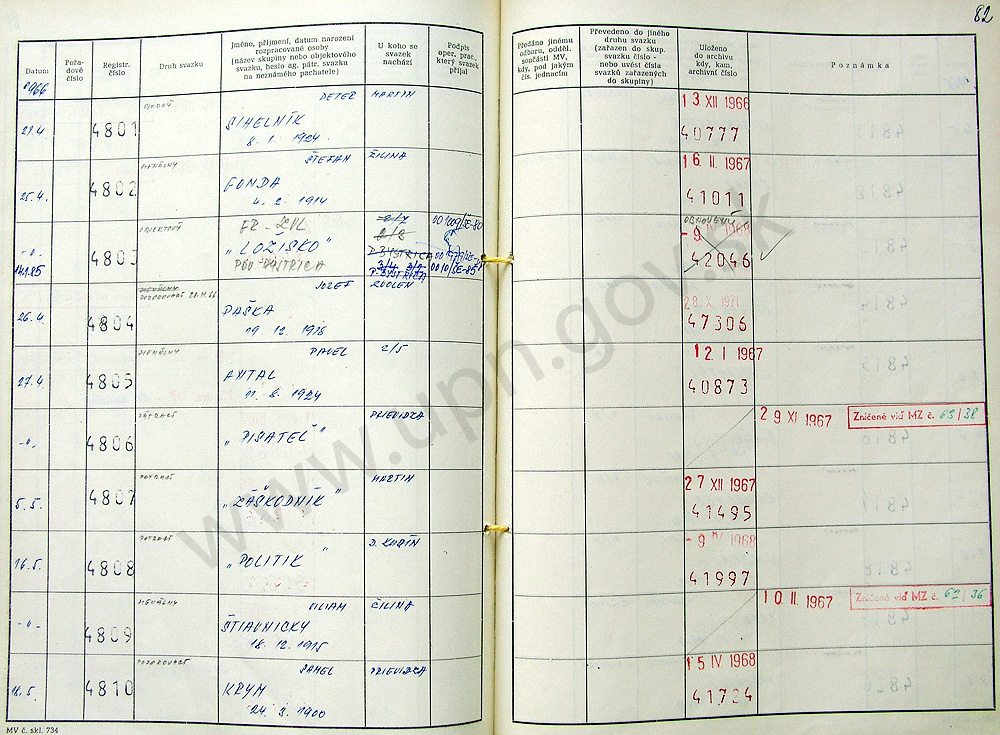 82
Datum
Pořadové číslo
Registr. číslo
Druh svazku
Jméno, příjmení, datum narození
rozpracované osoby
(název skupiny nebo objektového
svazku, heslo ag. pátr. svazku
na neznámého pachatele)
U koho se
svazek
nachází
Podpis
oper. prac.,
který svazek
přijal
Předáno jinému
odboru, odděl.
součásti MV,
kdy, pod jakým
čís. jednacím
Převedeno do jiného
druhu svazku
(zařazen do skup.
svazku číslo -
nebo uvést čísla
svazků zařazených
do skupiny)
Uloženo
do archivu
kdy, kam,
archivní číslo
Poznámka
1966
PETER MARTIN
13 XII 1966
21.4. 4801 SIHELNÍK 40777
8. 1. 1924
ŠTEFAN ŽILINA
16. II. 1967
25.4. 4802 FONDA 41011
4. 2. 1914
OBJEKTOVÝ
-"- 4803 "LOŽISKO" 42046
- 9 IV 1968
P. BYSTRICA
POZOROVACÍ 28.11.66
JOZEF ZVOLEN
28. X. 1971
26.4. 4804 PAŠKA 47306
19. 12. 1918
PAVEL 2/5
12. I 1967
27.4. 4805 ANTAL 40873
11. 8. 1924
PRIEVIDZA
29 XI 1967 Zničené viď MZ č. 65/38
-"- 4806 "PISATEĽ"
MARTIN
27 XII 1967
5.5. 4807 "ZÁŠKODNÍK" 41495
D. KUBÍN
- 9 IV 1968
16.5. 4808 "POLITIK" 41997
VILIAM ČILINA
10 II. 1967 Zničené viď MZ č. 62/36
-"- 4809 ŠTIAVNICKY
18. 12. 1915
POZOROVACÍ
KAMEL PRIEVIDZA
15 IV 1968
18.5. 4810 KRYM 41724
24. 3. 1900
MV č. skl. 734
www.upn.gov.sk